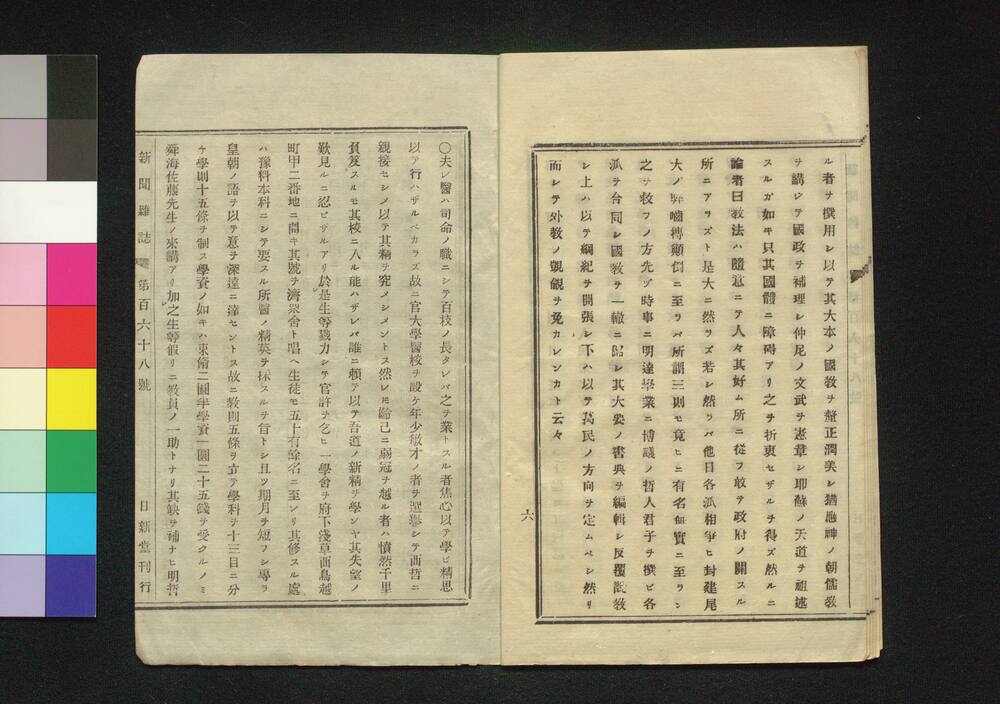 ル者ヲ撰用シ以テ其大本ノ國教ヲ釐正潤美シ猶應神ノ朝儒教
ヲ講ジテ國政ヲ補理シ仲尼ノ文武ヲ憲章シ耶蘇ノ天道ヲ祖述
スルガ如キ只其國體ニ障碍アリ之ヲ折衷セザルヲ得ズ然ルニ
論者曰教法ハ隨意ニテ人々其好ム所ニ從フ敢テ政府ノ關スル
所ニアラズト是大ニ然ラズ若シ然ラバ他日各派相爭ヒ封建尾
大ノ弊嘯傳顚倒ニ至ラバ所謂三則モ竟ヒニ有名無實ニ至ラン
之ヲ救フノ方先ヅ時事ニ明達學業ニ博議ノ哲人君子ヲ撰ビ各
派ヲ合同シ國教ヲ一轍ニ歸シ其大要ノ書典ヲ編輯シ反覆說教
シ上ハ以テ綱紀ヲ開張シ下ハ以テ萬民ノ方向ヲ定ムベシ然リ
而シテ外教ノ覬覦ヲ免カレンカト云々
六
○夫レ醫ハ司命ノ職ニシテ百技ノ長タレバ之ヲ業トスル者焦心以テ學ビ精思
以テ行ハザルベカラズ故ニ官大學醫校ヲ設ケ年少敏才ノ者ヲ選擧シテ西哲ニ
親接セシメ以テ其精ヲ究メシメントス然レモ齡已ニ弱冠ヲ越ル者ハ憤然千里
負笈スルモ其校ニ入ル能ハザレバ誰ニ賴テ以テ吾道ノ新精ヲ學ンヤ其失望ノ
歎見ルニ忍ビザルアリ於是生等戮力シテ官許ヲ乞ヒ一學舍ヲ府下淺草西鳥越
町甲二番地ニ開キ其號ヲ濟衆舍ト唱ヘ生徒モ五十有餘名ニ至レリ其修スル處
ハ豫科本科ニシテ要スル所醫ノ精英ヲ採スルヲ旨トシ且ツ期月ヲ短フシ專ラ
皇朝ノ語ヲ以テ意ヲ深遠ニ達セントス故ニ教則五條ヲ立テ學科ヲ十三目ニ分
ケ學則十五條ヲ制ス學資ノ如キハ束脩二圓半學資一圓二十五錢ヲ受クルノミ
舜海佐藤先生ノ來講アリ加之生等假リニ教員ノ一助トナリ其缺ヲ補ナヒ明哲
新聞雜誌 第百六十八號 日新堂刊行